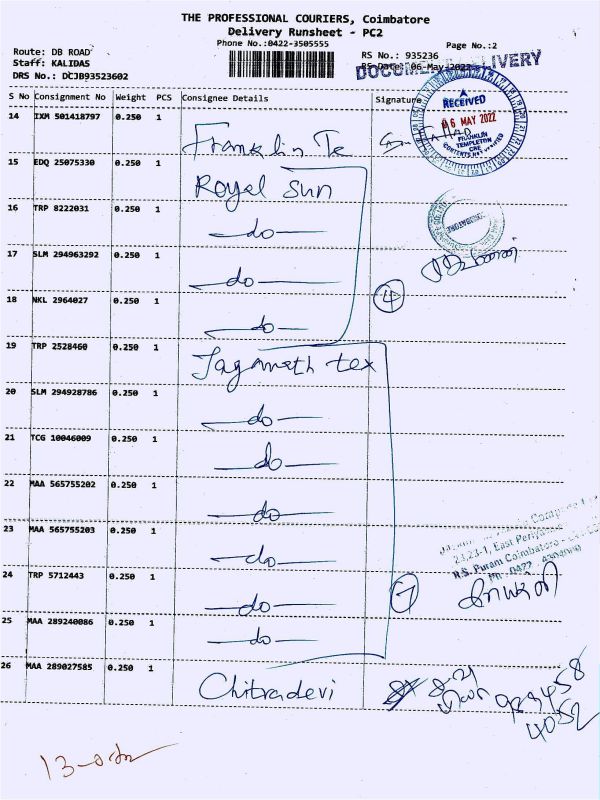 THE PROFESSIONAL COURIERS, Coimbatore
Delivery Runsheet - PC2
Phone No.:0422-3505555
Page No.:2
Route: DB ROAD
RS No.: 935236
Staff: KALIDAS
RS Date: 06-May-2022
DRS No.: DCJB93523602
DOCUMENT DELIVERY
S No Consignment No Weight PCS Consignee Details Signature
RECEIVED
06 MAY 2022
FRANKLIN
TEMPLETON
CONTENTS NOT VERIFIED
14 IXM 501418797 0.250 1 Franklin Te
15 EDQ 25075330 0.250 1 Royal Sun
16 TRP 8222031 0.250 1 -do-
17 SLM 294963292 0.250 1 -do-
18 NKL 2964027 0.250 1 -do-
4
19 TRP 2528460 0.250 1 Jaganath tex
20 SLM 294928786 0.250 1 -do-
21 TCG 10046009 0.250 1 -do-
22 MAA 565755202 0.250 1 -do-
23 MAA 565755203 0.250 1 -do-
24 TRP 5712443 0.250 1 -do-
25 MAA 289240086 0.250 1 -do-
7
23,23-1, East Periya
R.S. Puram Coimbatore
26 MAA 289027585 0.250 1 Chitradevi
4052